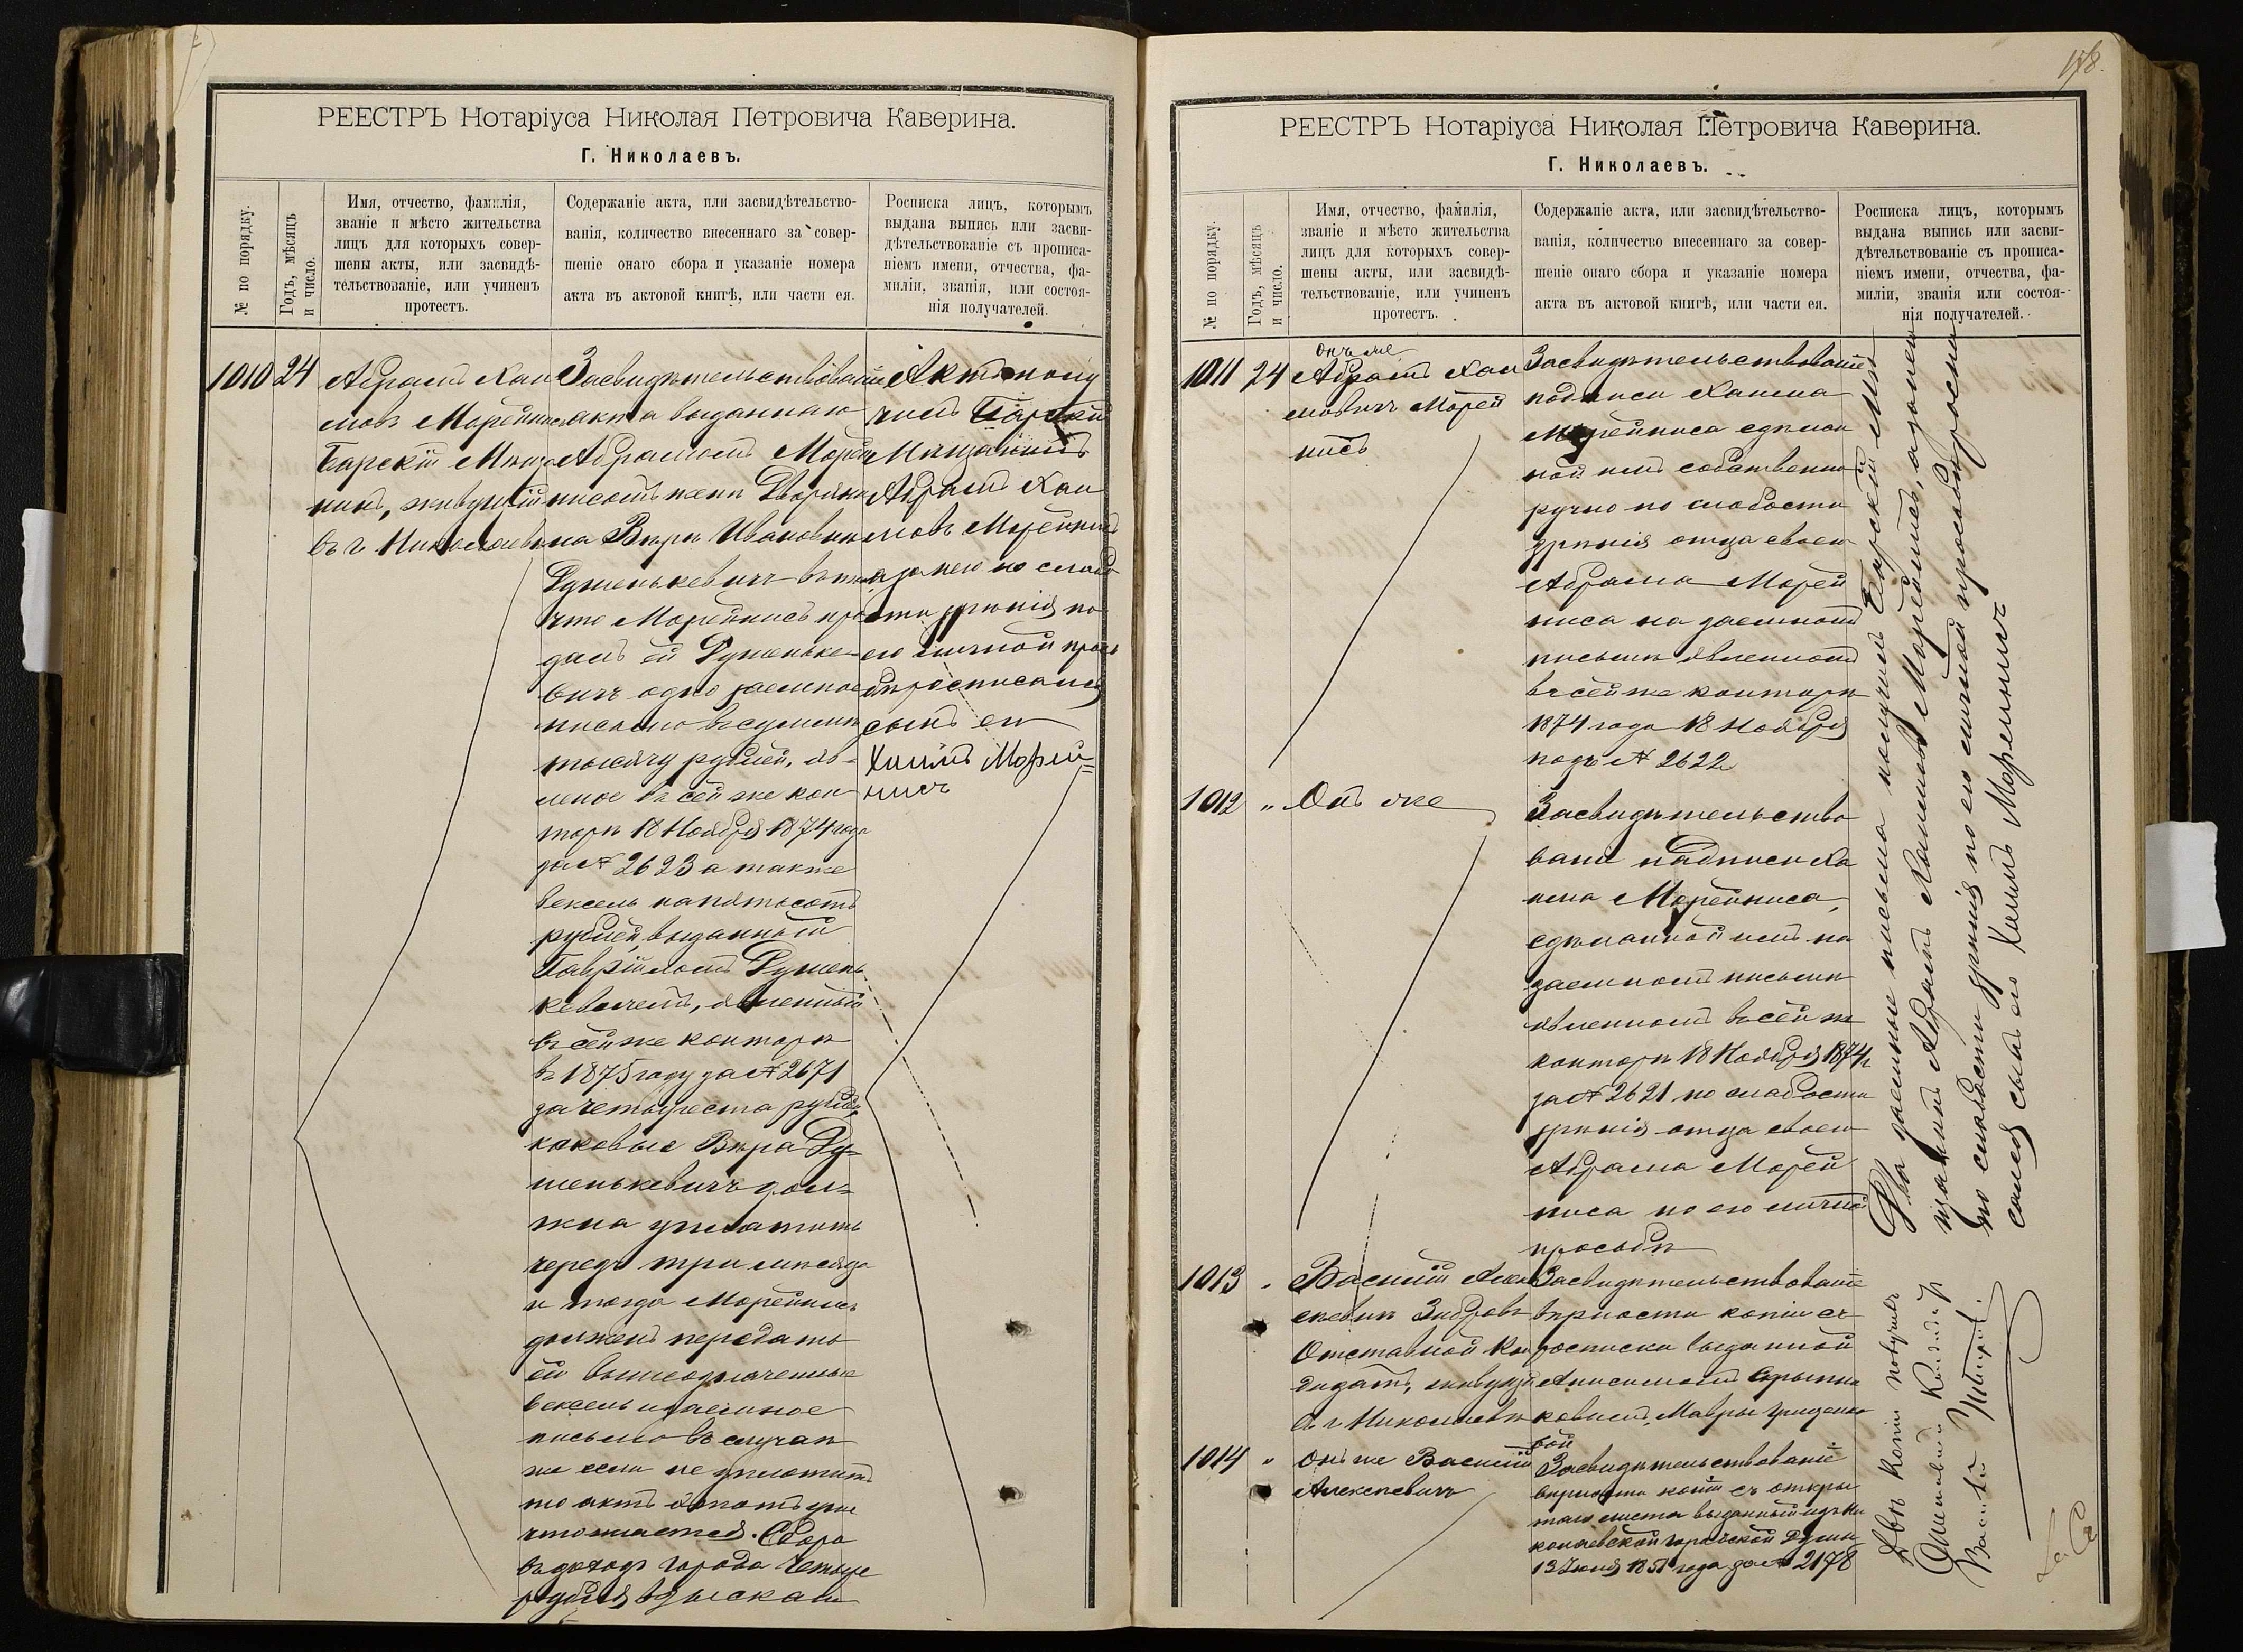 РЕЕСТРЪ Нотаріуса Николая Петровича Каверина.
Г. Николаевъ.
№ по порядку.
Годъ, мѣсяцъ
и число.
Имя, отчество, фамилія,
званіе и мѣсто жительства
лицъ для которыхъ совер-
шены акты, или засвидѣ-
тельствованіе, или учиненъ
протестъ.
Содержаніе акта, или засвидѣтельство-
ванія, количество внесеннаго за совер-
шеніе онаго сбора и указаніе номера
акта въ актовой книгѣ, или части ея.
Росписка лицъ, которымъ
выдана выпись или засви-
дѣтельствованіе съ прописа-
ніемъ имени, отчества, фа-
миліи, званія, или состоя-
нія получателей.
1010 24
Абрамъ Хаи
мовъ Морейнисъ
Барскій Мѣща
нинъ, живущій
въ г. Николаевѣ
Засвидѣтельствованіе
акта выданнаго
Абрамомъ Морей
нисомъ женѣ Дворяни
на Вѣрѣ Ивановнѣ
Думенькевичъ въ томъ
что Морейнисъ про
далъ ей Думеньке-
вичъ одно заемное
письмо въ суммѣ
тысячу рублей, яв-
леное въ сей же кон
торѣ 18 Ноября 1874 года
за № 2623 а также
вексель на пятьсотъ
рублей, выданный
Гавріиломъ Думень
кевичемъ, явленный
въ сей же конторѣ
въ 1875 году за № 2671
за четыреста рублей
каковые Вѣра Ду=
менькевичъ дол=
жна уплатить
черезъ три мѣсяца
и тогда Морейнисъ
долженъ передать
ей вышеозначенные
вексель и заемное
письмо въ случаѣ
же если не уплотитъ
то актъ
уни
чтожается. Сбора
въ доходъ города четыре
рубля взыскано
Актъ полу
чилъ Барскій
Мѣщанинъ
Абрамъ Хаи
мовъ Морейнисъ
а за него по слабо
сти зрѣнія по
его личной прось
бѣ росписался
сынъ его
Хаимъ Морей=
нисъ
178.
РЕЕСТРЪ Нотаріуса Николая Петровича Каверина.
Г. Николаевъ.
№ по порядку.
Годъ, мѣсяцъ
и число.
Имя, отчество, фамилія,
званіе и мѣсто жительства
лицъ для которыхъ совер-
шены акты, или засвидѣ-
тельствованіе, или учиненъ
протестъ.
Содержаніе акта, или засвидѣтельство-
ванія, количество внесеннаго за совер-
шеніе онаго сбора и указаніе номера
акта въ актовой книгѣ, или части ея.
Росписка лицъ, которымъ
выдана выпись или засви-
дѣтельствованіе съ прописа-
ніемъ имени, отчества, фа-
миліи, званія или состоя-
нія получателей.
1011 24
Онъ же
Абрамъ Хаи
мовичъ Морей
нисъ
Засвидѣтельствованіе
подписи Хаима
Морейниса сдѣлан
ной имъ собственно
ручно по слабости
зрѣнія отца своего
Абрама Морей
ниса на заемномъ
письмѣ явленномъ
въ сей же конторѣ
1874 года 18 Ноября
подъ № 2622
1012 " Онъ же
Засвидѣтельство
ваніе надписи Ха
има Морейниса,
сдѣланной имъ на
заемномъ письмѣ
явленномъ въ сей же
конторѣ 18 Ноября 1874 г.
за № 2621 по слабости
зрѣнія отца своего
Абрама Морей
ниса по его личной
просьбѣ
Два заемные письма получилъ Барскій Мѣ
щанинъ Абрамъ Хаимовъ Морейнисъ, а за него
по слабости зрѣнія по его личной просьбѣ росписал
сынъ его Хаимъ Морейнисъ
1013 "
Василій Але
ксѣевъ
Отставной Кон
дукторъ, живущій
въ г. Николаевѣ
Засвидѣтельствованіе
вѣрности копіи съ
росписки выданной
Анисимомъ
Мавры
вой
1014 "
Онъ же Василій
Алексѣевичъ
Засвидѣтельствованіе
вѣрности копіи съ откры
таго листа выданный изъ Ни
колаевской городской Думы
13 Іюня 1851 года за № 2178
Двѣ копіи получилъ
Отставной
Василій